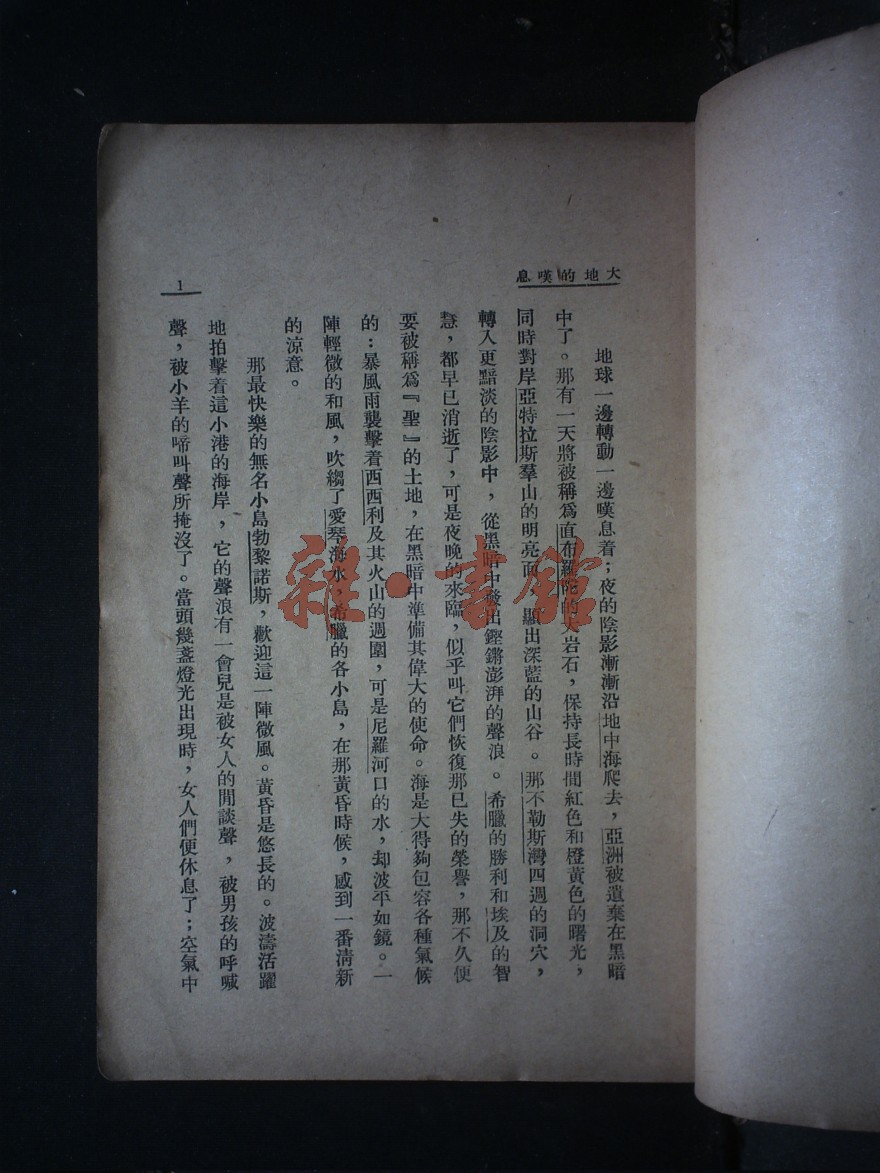 大地的嘆息
地球一邊轉動一邊嘆息着；夜的陰影漸漸沿地中海爬去，亞洲被遺棄在黑暗
中了。那有一天將被稱爲直布羅陀的大岩石，保持長時間紅色和橙黃色的曙光，
同時對岸亞特拉斯羣山的明亮面，顯出深藍的山谷。那不勒斯灣四週的洞穴，
轉入更黯淡的陰影中，從黑暗中發出鏗鏘澎湃的聲浪。希臘的勝利和埃及的智
慧，都早已消逝了，可是夜晚的來臨，似乎叫它們恢復那已失的榮譽，那不久便
要被稱爲『聖』的土地，在黑暗中準備其偉大的使命。海是大得夠包容各種氣候
的：暴風雨襲擊着西西利及其火山的週圍，可是尼羅河口的水，却波平如鏡。一
陣輕微的和風，吹縐了愛琴海水，希臘的各小島，在那黃昏時候，感到一番清新
的涼意。
那最快樂的無名小島勃黎諾斯，歡迎這一陣微風。黃昏是悠長的。波濤活躍
地拍擊着這小港的海岸，它的聲浪有一會兒是被女人的閒談聲，被男孩的呼喊
聲，被小羊的啼叫聲所掩沒了。當頭幾盞燈光出現時，女人們便休息了；空氣中
1
雜·書館